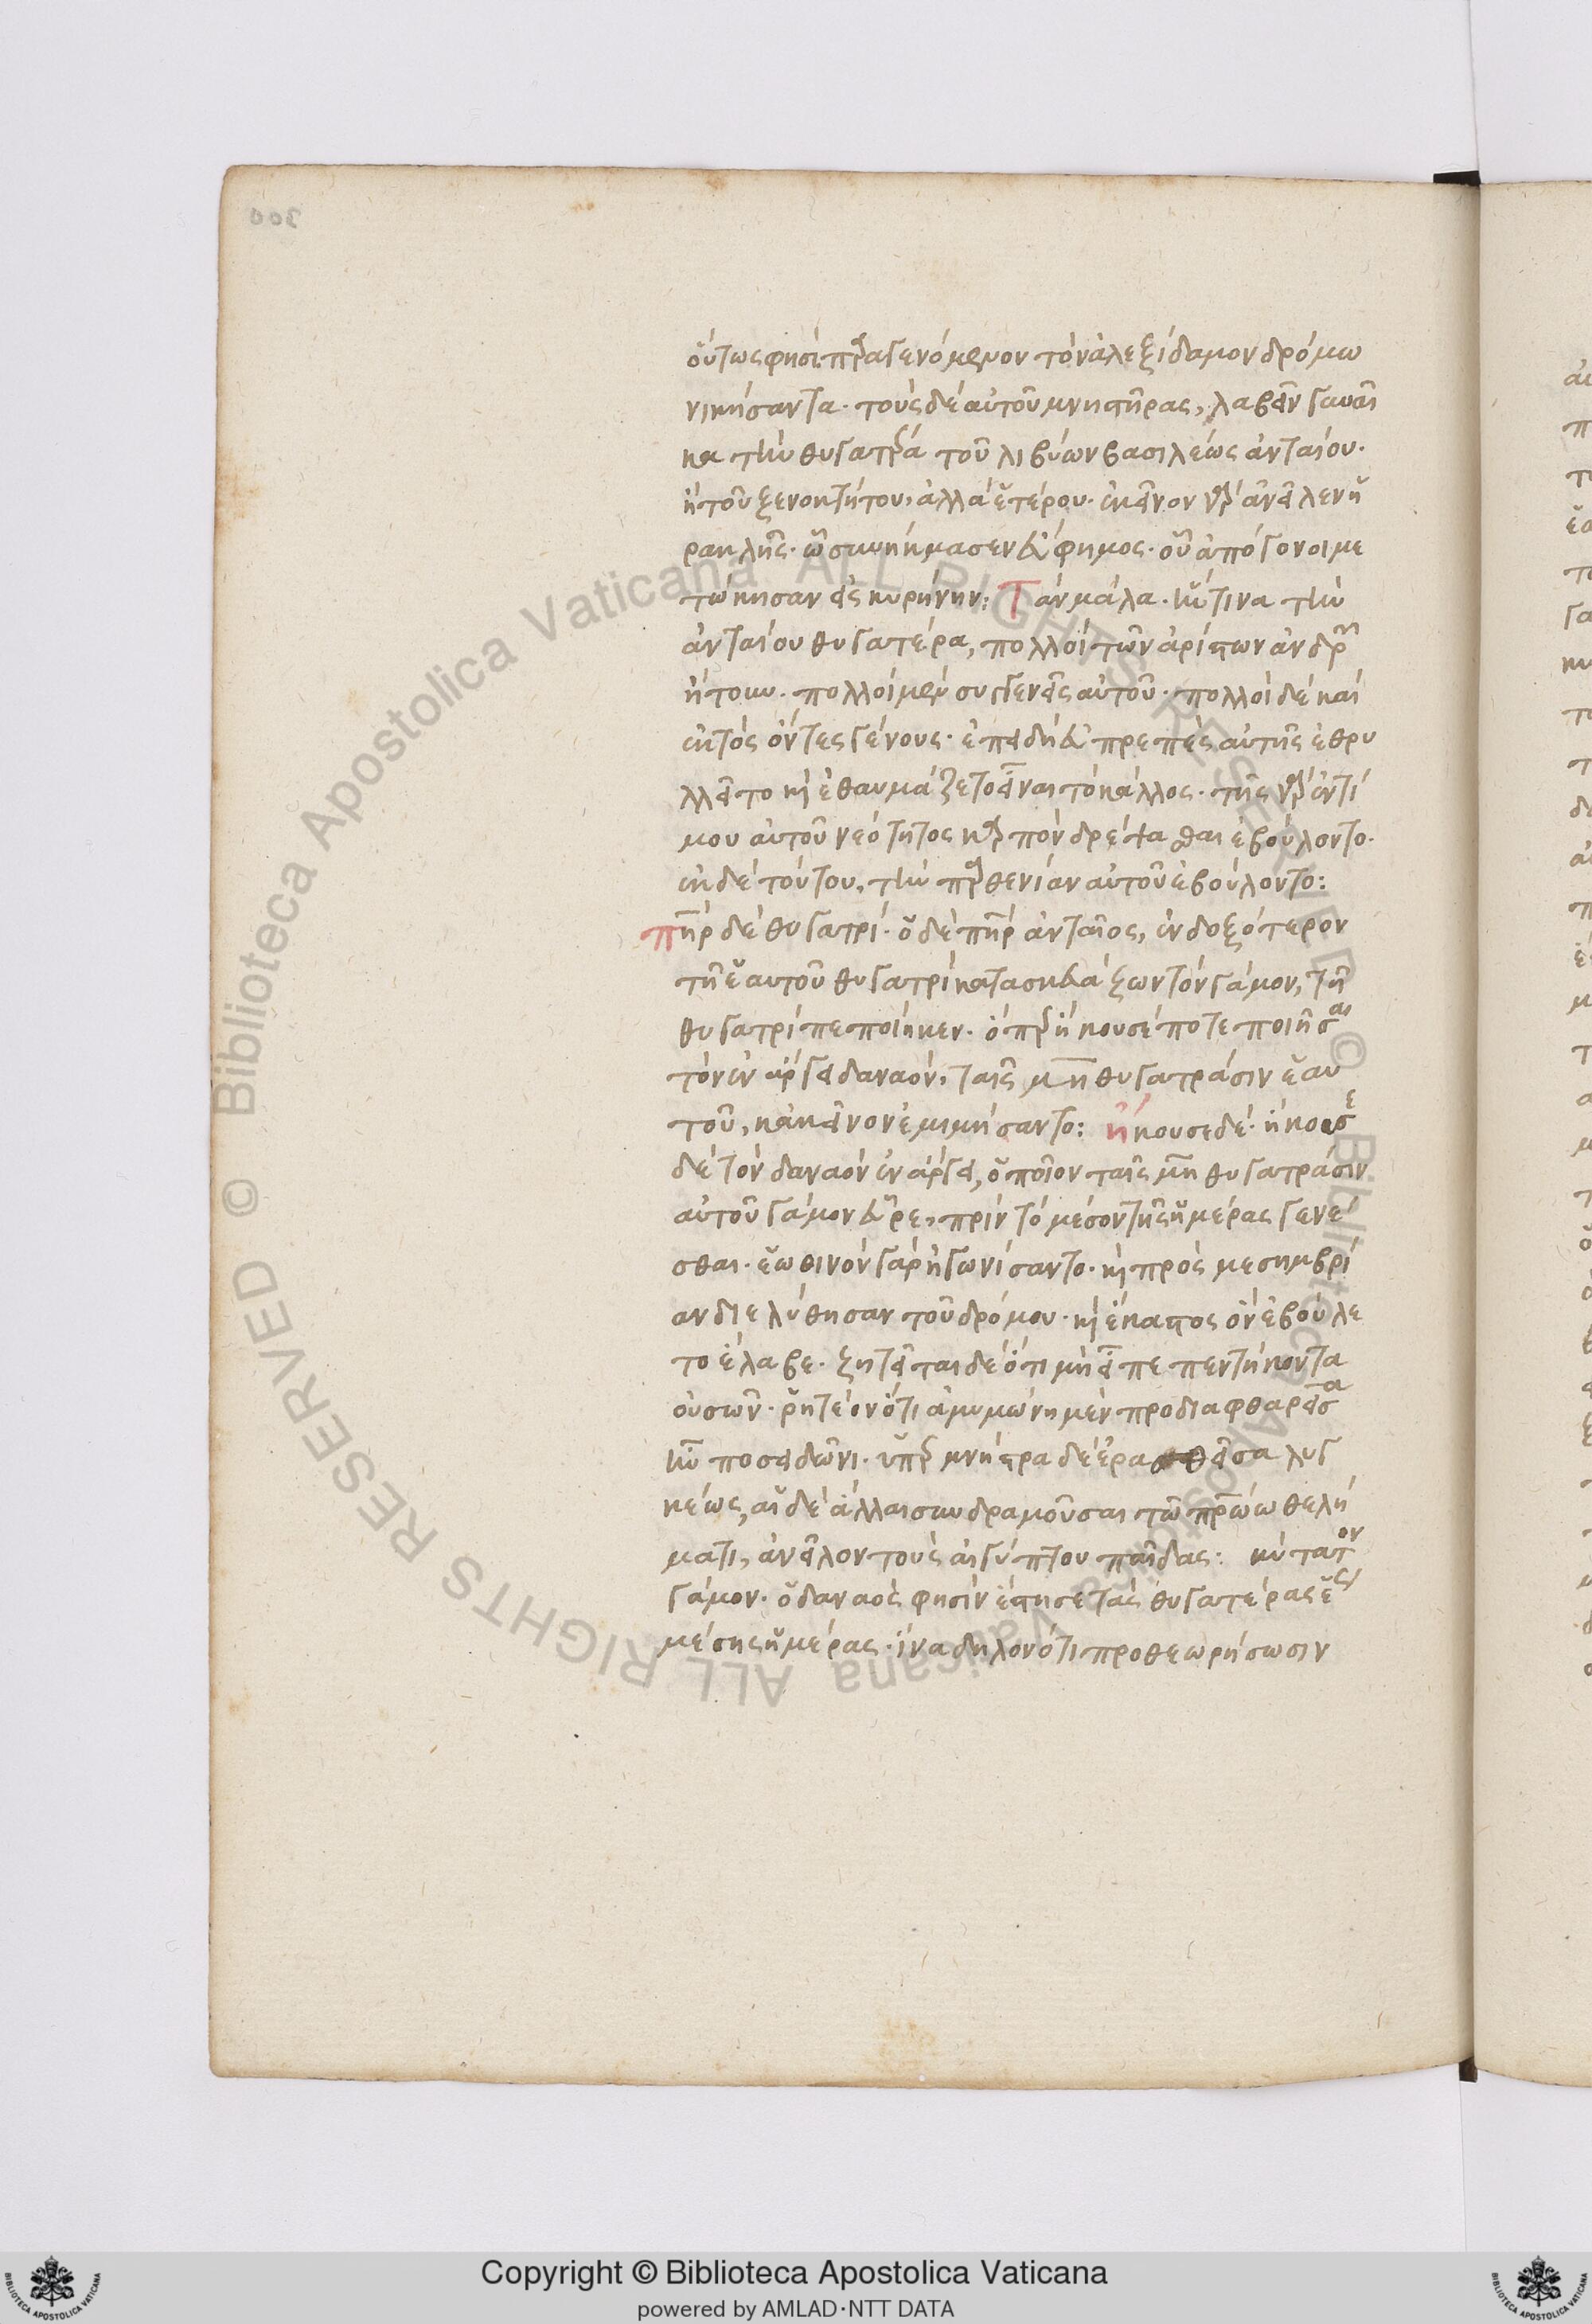 οὕτως φησι παραγενόμενον τὸν ἀλεξίδαμον δρόμω
νικήσαντα· τοὺς δὲ αὐτοῦ μνηστῆρας, λαβεῖν γυναῖ
κα τὴν θυγατέρα τοῦ λιβύων βασιλέως ἀνταίου·
ἢ τοῦ ζητου, ἀλλὰ ἑτέρου· ἐκεῖνον γὰρ ἀνεῖλεν ἡ
ρακλῆς· ὧ συνήκμασεν εὔφημος· οὗ ἀπόγονοι με
τώκησαν εἰς κυρήνην: Τὰν μάλα· ἥντινα τὴν
ἀνταίου θυγατέρα, πολλοὶ τῶν ἀρίστων ἀνδρῶν
ἤτουν· πολλοὶ μὲν συγγενεῖς αὐτοῦ· πολλοὶ δὲ καὶ
ἐκτὸς ὄντες γένους· ἐπειδὴ εὐπρεπὲς αὐτῆς ἐθρυ
λλεῖτο καὶ ἐθαυμάζετο εἶναι τὸ κάλλος· τῆς γὰρ ἐντί
μου αὐτοῦ νεότητος καρπὸν δρέψασθαι ἐβούλοντο·
ἐκ δὲ τούτου, τὴν παρθενίαν αὐτοῦ ἐβούλοντο:
πὴρ δὲ θυγατρί· ὁ δὲ πὴρ ἀνταῖος, ἐνδοξότερον
τῆ ἑαυτοῦ θυγατρὶ κατασκευάζων τὸν γάμον, τῆ
θυγατρὶ πεποίηκεν· ὅπερ ἤκουσέ ποτε ποιῆσαι
τὸν ἐν ἄργει δαναόν, ταῖς μη θυγατράσιν ἑαυ
τοῦ, κἀκεῖνον ἐμιμήσαντο: ἤκουσε δέ· ἤκουσε
δὲ τὸν δαναὸν ἐν ἄργει, ὁποῖον ταῖς μη θυγατράσιν
αὐτοῦ γάμον εὗρε, πρὶν τὸ μέσον τῆς ἡμέρας γενέ
σθαι· ἑωθινὸν γὰρ ἠγωνίσαντο· καὶ πρὸς μεσημβρί
αν διελύθησαν τοῦ δρόμου· καὶ ἕκαστος ὃν ἐβούλε
το ἔλαβε· ζητεῖται δὲ ὅτι μὴ εἶπε πεντήκοντα
οὐσῶν· ῥητέον ὅτι ἀμυμώνη μὲν προδιαφθαρεῖσα
ἦν ποσειδῶνι· ὑπερμνήστρα δὲ ἐρασθεῖσα λυγ
κέως, αἱ δὲ ἄλλαι συνδραμοῦσαι τῶ πρώω θελή
ματι, ἀνεῖλον τοὺς αἰγύπτου παῖδας: κύτατον
γάμον· ὁ δαναὸς φησὶν ἔστησε τὰς θυγατέρας ἕως
μέσης ἡμέρας· ἵνα δηλονότι προθεωρήσωσιν
Copyright © Biblioteca Apostolica Vaticana
powered by AMLAD·NTT DATA